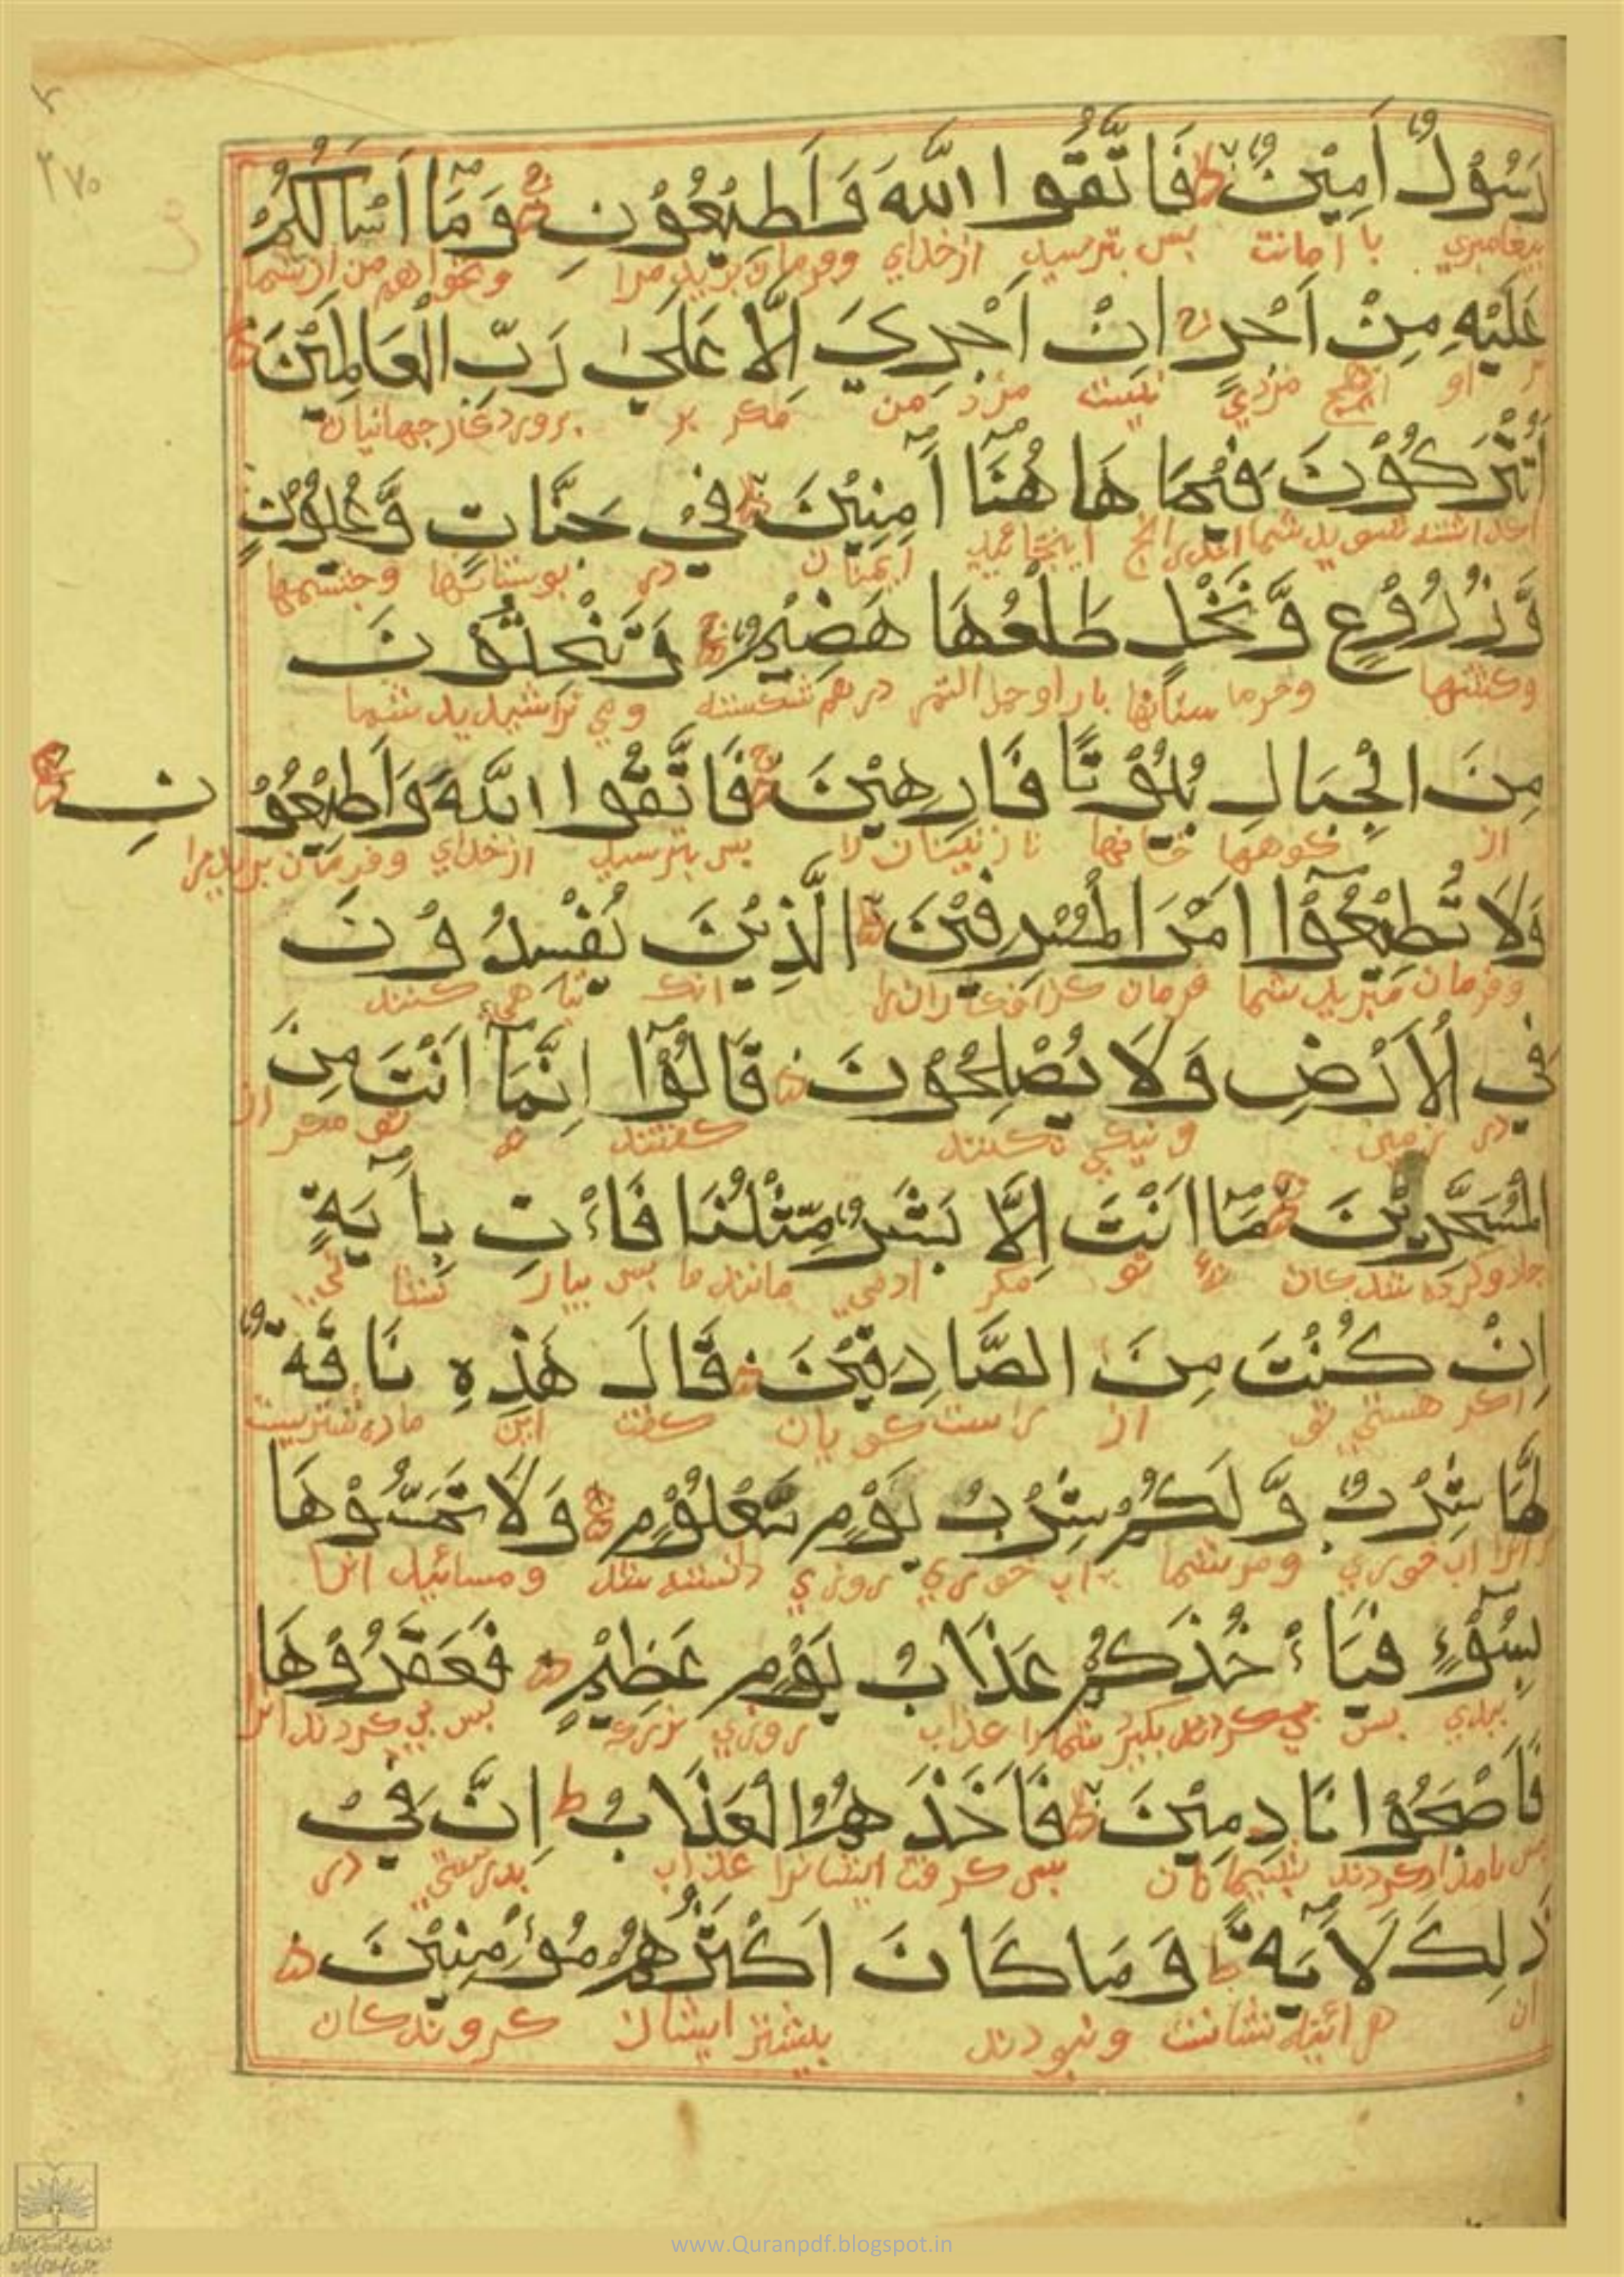 رَسُوْلٌ اَمِيْنٌ فَاتَّقُوا اللّٰهَ وَاَطِيْعُوْنِ وَمَآ اَسْأَلُكُمْ
پیغامبری با امانت پس بترسید از خدای وفرمان برید مرا ونخواهم من از شما
عَلَيْهِ مِنْ اَجْرٍ اِنْ اَجْرِيَ اِلَّا عَلَىٰ رَبِّ الْعَالَمِيْنَ
بر او هیچ مزدی نیست مزد من مگر بر پروردگار جهانیان
اَتُتْرَكُوْنَ فِيْمَا هَا هُنَآ اٰمِنِيْنَ فِيْ جَنَّاتٍ وَّعُيُوْنٍ
ایمنان در بوستانها وچشمها
وَّزُرُوْعٍ وَّنَخْلٍ طَلْعُهَا هَضِيْمٌ وَتَنْحِتُوْنَ
وکشتها وخرما ستانها بار او در هم شکسته ومی تراشیدید شما
مِنَ الْجِبَالِ بُيُوْتًا فَارِهِيْنَ فَاتَّقُوا اللّٰهَ وَاَطِيْعُوْنِ
از کوهها خانها پس بترسید از خدای وفرمان برید مرا
وَلَا تُطِيْعُوْٓا اَمْرَ الْمُسْرِفِيْنَ الَّذِيْنَ يُفْسِدُوْنَ
وفرمان مبرید شما فرمان گزافکاران را آنک تباهی کنند
فِي الْاَرْضِ وَلَا يُصْلِحُوْنَ قَالُوْٓا اِنَّمَآ اَنْتَ مِنَ
در زمین ونیکی نکنند گفتند نه تو مگر از
الْمُسَحَّرِيْنَ مَآ اَنْتَ اِلَّا بَشَرٌ مِّثْلُنَا فَاْتِ بِاٰيَةٍ
جادو کرده شدگان نه تو مگر آدمی مانند ما پس بیار نشانی
اِنْ كُنْتَ مِنَ الصَّادِقِيْنَ قَالَ هَذِهِ نَاقَةٌ
اگر هستی تو از راست گویان گفت این ماده شتریست
لَهَا شِرْبٌ وَّلَكُمْ شِرْبُ يَوْمٍ مَّعْلُوْمٍ وَلَا تَمَسُّوْهَا
آنرا آب خوری ومر شما آب خوری روزی دانسته شده ومسائید آنرا
بِسُوْٓءٍ فَيَأْخُذَكُمْ عَذَابُ يَوْمٍ عَظِيْمٍ فَعَقَرُوْهَا
ببدی پس بگیرد شما را عذاب روزی بزرگ پس پی کردند آنرا
فَاَصْبَحُوْا نَادِمِيْنَ فَاَخَذَهُمُ الْعَذَابُ اِنَّ فِيْ
پس بامداد کردند پشیمانان پس گرفت ایشانرا عذاب بدرستی در
ذٰلِكَ لَاٰيَةً وَمَا كَانَ اَكْثَرُهُمْ مُؤْمِنِيْنَ
آن هر آئینه نشانست ونبودند بیشتر ایشان گروندگان
۲۷۰
www.Quranpdf.blogspot.in